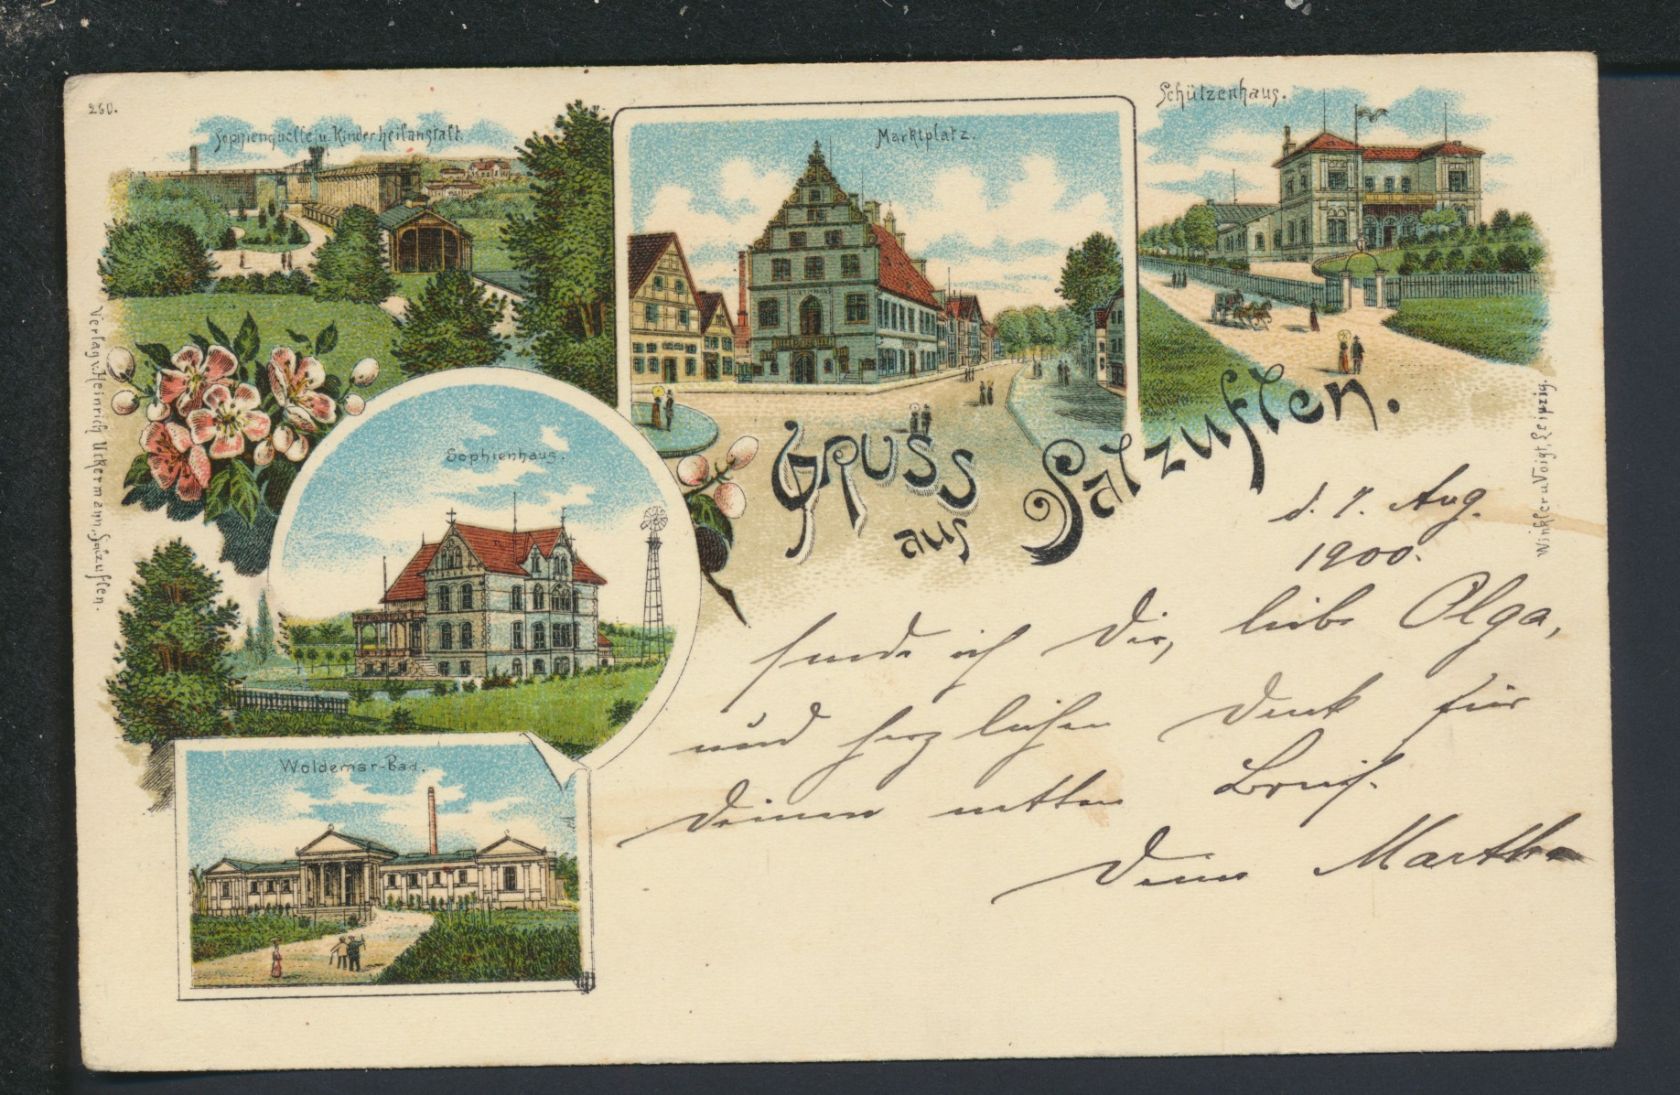 260.
Sophienquelle u. Kinderheilanstalt.
Marktplatz.
Schützenhaus.
Gruss
aus
Salzuflen.
Sophienhaus.
Woldemar-Bad.
Verlag v. Heinrich Uekermann, Salzuflen.
Winkler u. Voigt, Leipzig.
d. 7. Aug.
1900.
sende ich Dir, liebe Olga,
und herzlichen Dank für
Deinen netten Brief.
Deine Martha